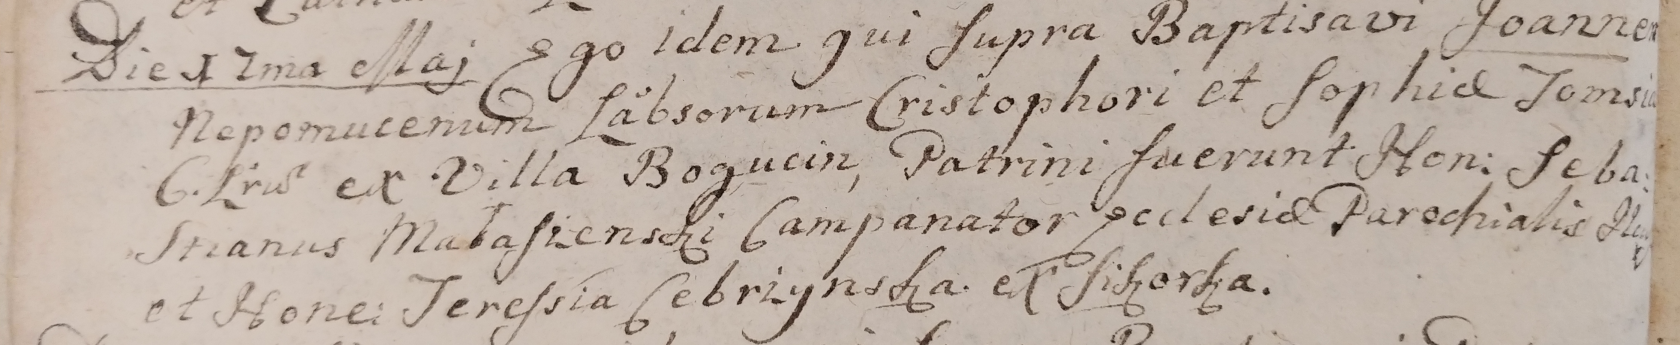 Die 17ma Maj Ego idem qui supra Baptisavi Joannem
Nepomucenum Läbsorum Cristophori et Sophiæ
C. Lrus ex Villa Bogucin, Patrini fuerunt Hon: Seba:
stianus Matasienski Campanator Ecclesiæ Parochialis
et Hone: Teressia Cebrzynska. ex Sikorka.